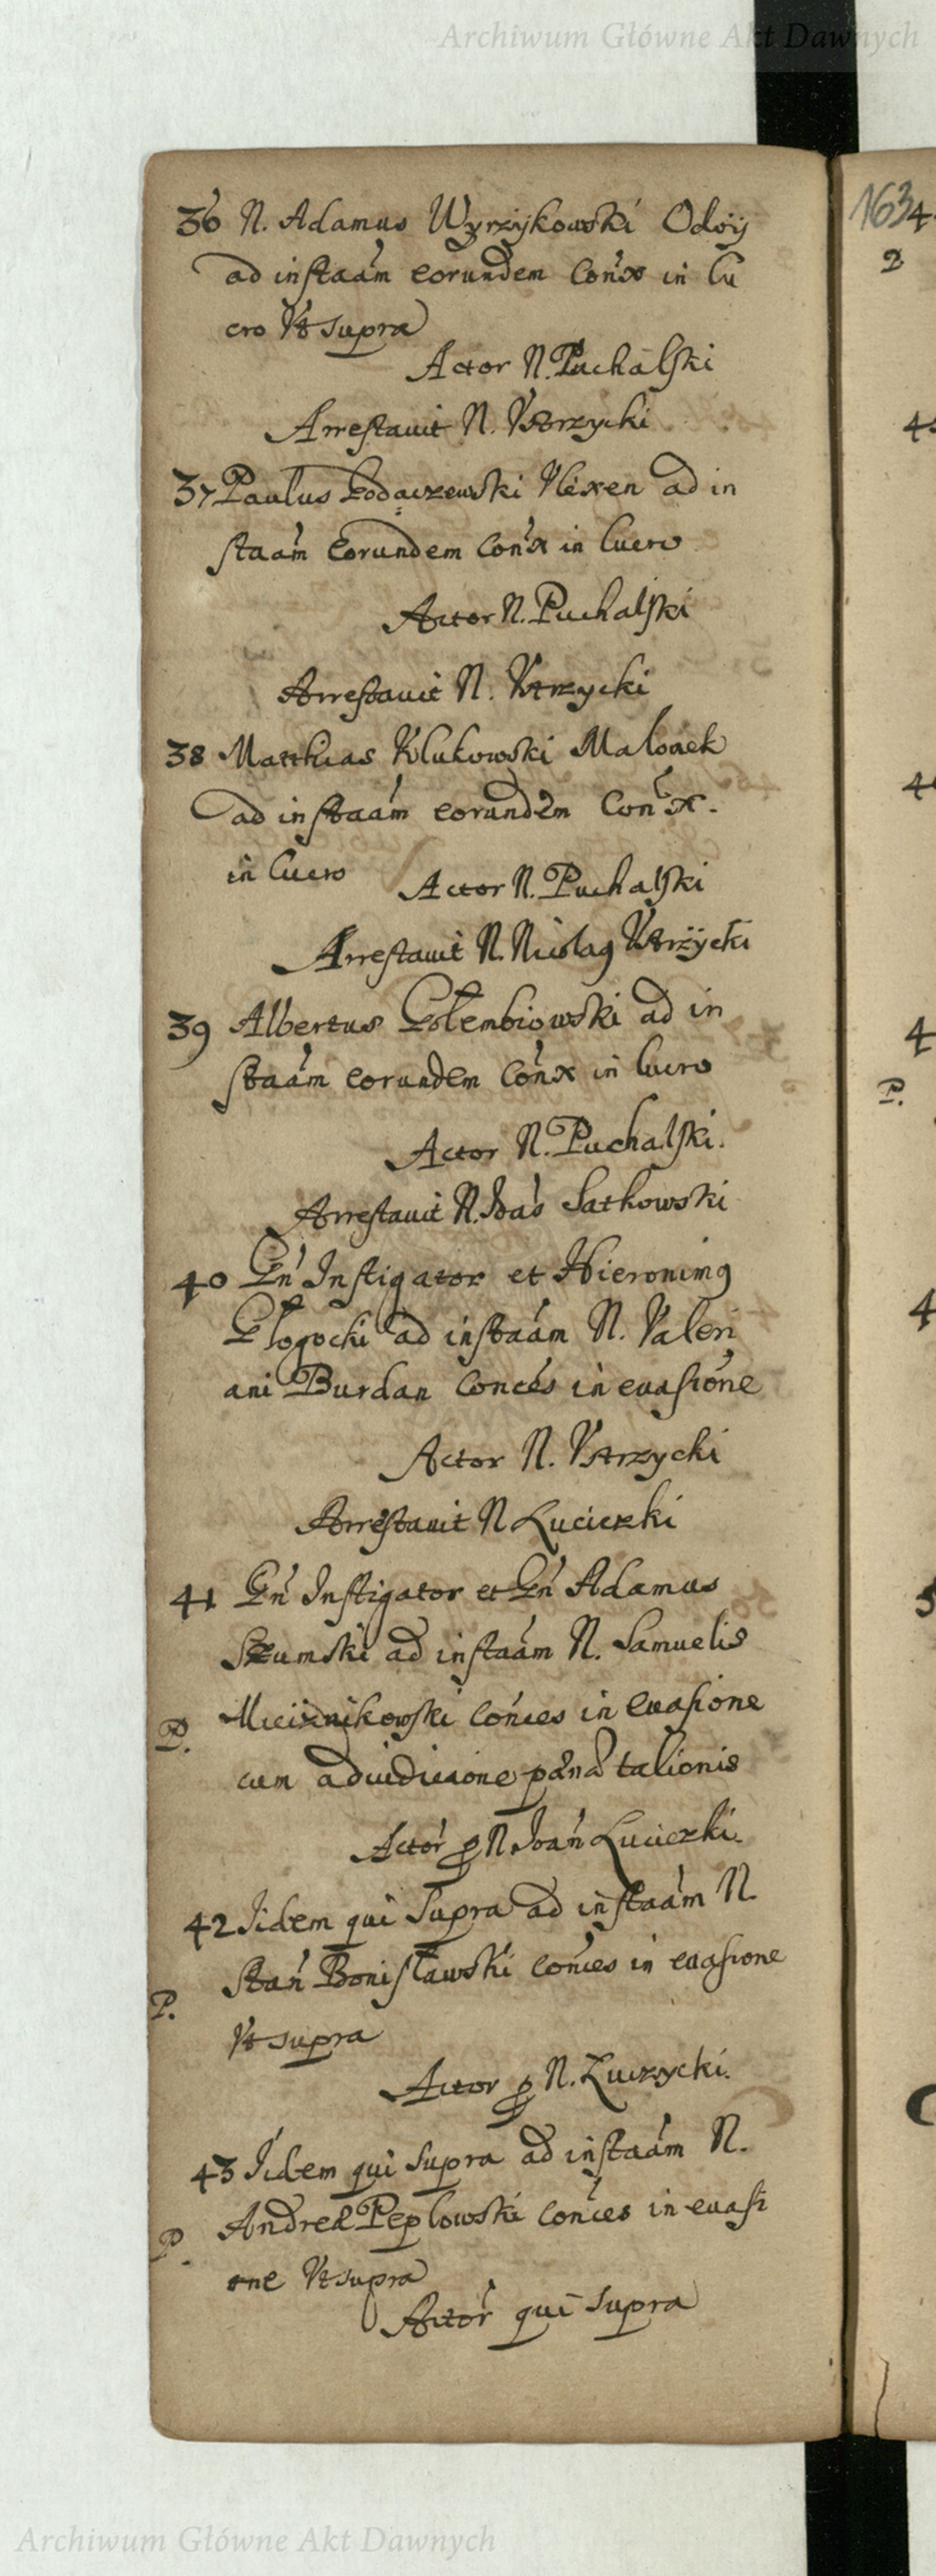 Archiwum Główne Akt Dawnych
36 N. Adamus Wyrzykowski Odoij
ad instaam eorundem Conx in lu
cro Vt supra
Actor N. Puchalski
Arrestauit N. Vstrzycki
37 Paulus Godaczewski Vlixen ad in
staam eorundem Conx in lucro
Actor N. Puchalski
Arrestauit N. Vstrzycki
38 Matthias Klukowski Malonek
ad instaam eorundem Conx.
in lucro Actor N. Puchalski
Arrestauit N. Nicolaq Vstrzycki
39 Albertus Golembiowski ad in
staam eorundem Conx in lucro
Actor N. Puchalski.
Arrestauit N. Joas Satkowski
40 Gn Instigator et Hieronimq
Głogocki ad instaam N. Valeri
ani Burdan Conces in euasione
Actor N. Vstrzycki
Arrestauit N Luciczki
41 Gn Instigator et Gn Adamus
Szumski ad instaam N. Samuelis
P. Conces in Euasione
cum adiudicaone pana talionis
Actor p N. Joan Luciczki.
42 Iidem qui Supra ad instaam N.
P. Stan Bonisławski Conces in euasione
Vt supra
Actor p N. Luczycki.
43 Iidem qui Supra ad instaam N.
P. Andrea Peplowski Conces in euasi
one Vt supra
Actor qui supra
163
Archiwum Główne Akt Dawnych